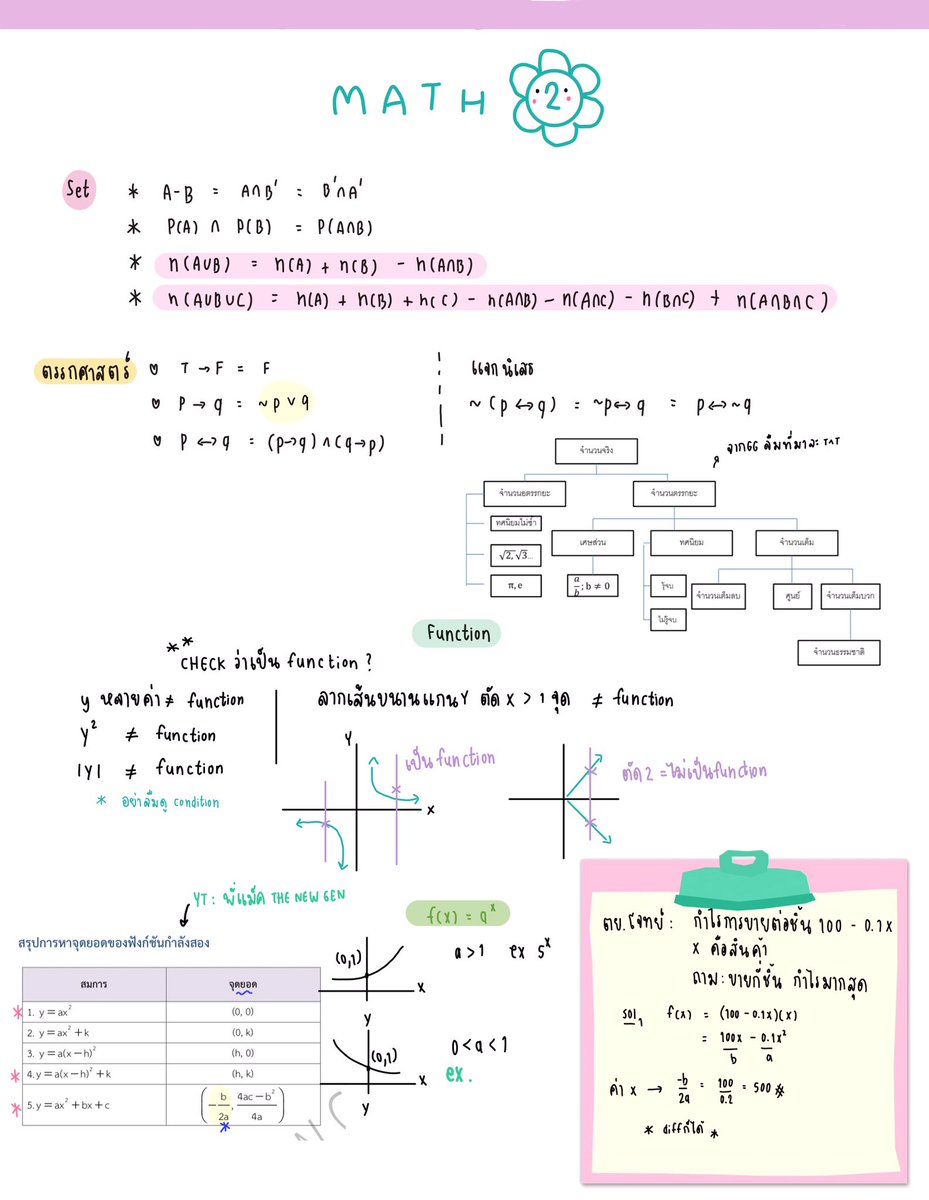 MATH 2
Set
* A-B = A∩B' = B'∩A'
* P(A) ∩ P(B) = P(A∩B)
* n(A∪B) = n(A) + n(B) - n(A∩B)
* n(A∪B∪C) = n(A) + n(B) + n(C) - n(A∩B) - n(A∩C) - n(B∩C) + n(A∩B∩C)
ตรรกศาสตร์
♡ T → F = F
♡ p → q = ~p ∨ q
♡ p ↔ q = (p→q) ∧ (q→p)
แจกนิเสธ
~(p ↔ q) = ~p ↔ q = p ↔ ~q
จากGG ลืมที่มาละ T^T
จำนวนจริง
จำนวนอตรรกยะ
จำนวนตรรกยะ
ทศนิยมไม่ซ้ำ
√2, √3...
π, e
เศษส่วน
a/b ; b ≠ 0
ทศนิยม
รู้จบ
ไม่รู้จบ
จำนวนเต็ม
จำนวนเต็มลบ
ศูนย์
จำนวนเต็มบวก
จำนวนธรรมชาติ
Function
** CHECK ว่าเป็น function ?
y หลายค่า ≠ function
y² ≠ function
|y| ≠ function
* อย่าลืมดู condition
ลากเส้นขนานแกน Y ตัด X > 1 จุด ≠ function
Y
X
เป็น function
ตัด 2 = ไม่เป็น function
YT : พี่แม็ค THE NEW GEN
สรุปการหาจุดยอดของฟังก์ชันกำลังสอง
สมการ จุดยอด
* 1. y = ax² (0, 0)
2. y = ax² + k (0, k)
3. y = a(x−h)² (h, 0)
* 4. y = a(x−h)² + k (h, k)
* 5. y = ax² + bx + c (−b/2a, 4ac−b²/4a)
*
f(x) = aˣ
(0,1)
X
Y
a > 1 ex 5ˣ
(0,1)
X
Y
0 < a < 1
ex.
ตย.โจทย์ : กำไรการขายต่อชิ้น 100 - 0.1x
x คือสินค้า
ถาม : ขายกี่ชิ้น กำไรมากสุด
sol, f(x) = (100 - 0.1x)(x)
= 100x - 0.1x²
b a
ค่า x → -b/2a = 100/0.2 = 500 *
* diffก็ได้ *